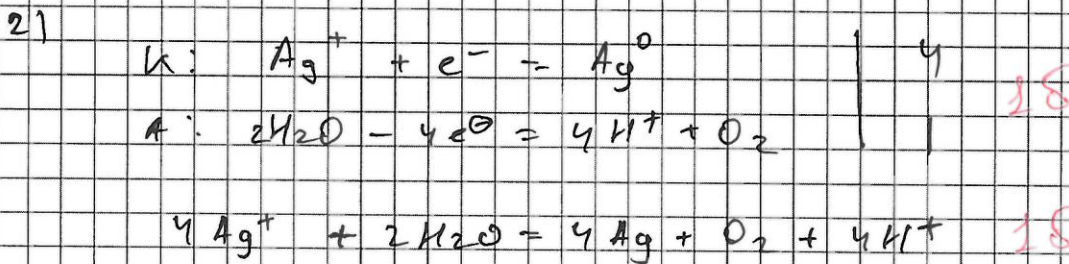 2)
K: Ag⁺ + e⁻ = Ag⁰ | 4
1б
A: 2H2O - 4e⊖ = 4H⁺ + O₂ | 1
4Ag⁺ + 2H2O = 4Ag + O₂ + 4H⁺ 1б